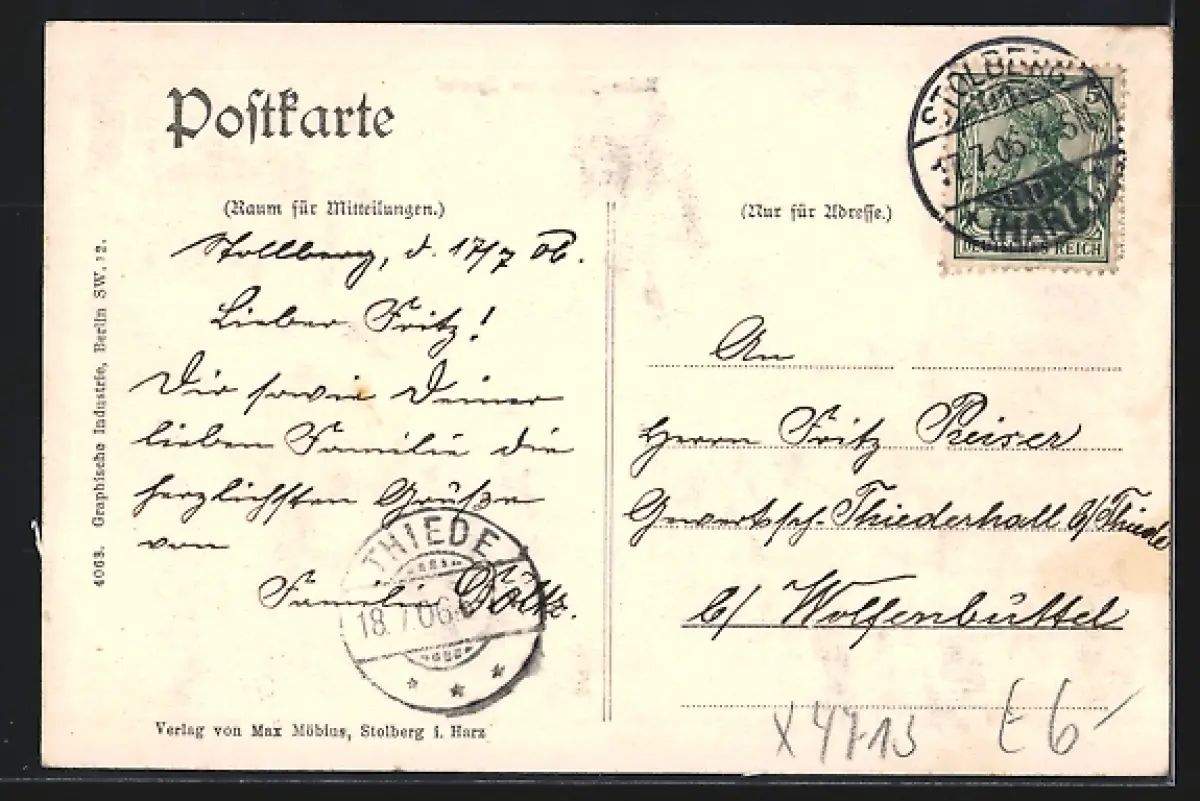 Postkarte
(Raum für Mitteilungen.)
Stollberg, d. 17/7 06.
Lieber Fritz!
Dir sowie Deiner
lieben Familie die
herzlichsten Grüße
von
Familie Göltz.
Verlag von Max Möbius, Stolberg i. Harz
4063. Graphische Industrie, Berlin SW. 12.
THIEDE
18.7.06
(Nur für Adresse.)
STOLBERG
17.7.06.
(HARZ)
5
DEUTSCHES REICH
An
Herrn Fritz Reiser
Gewerksch. Thiederhall b/Thiede
b/ Wolfenbüttel
x 4713
E 6-